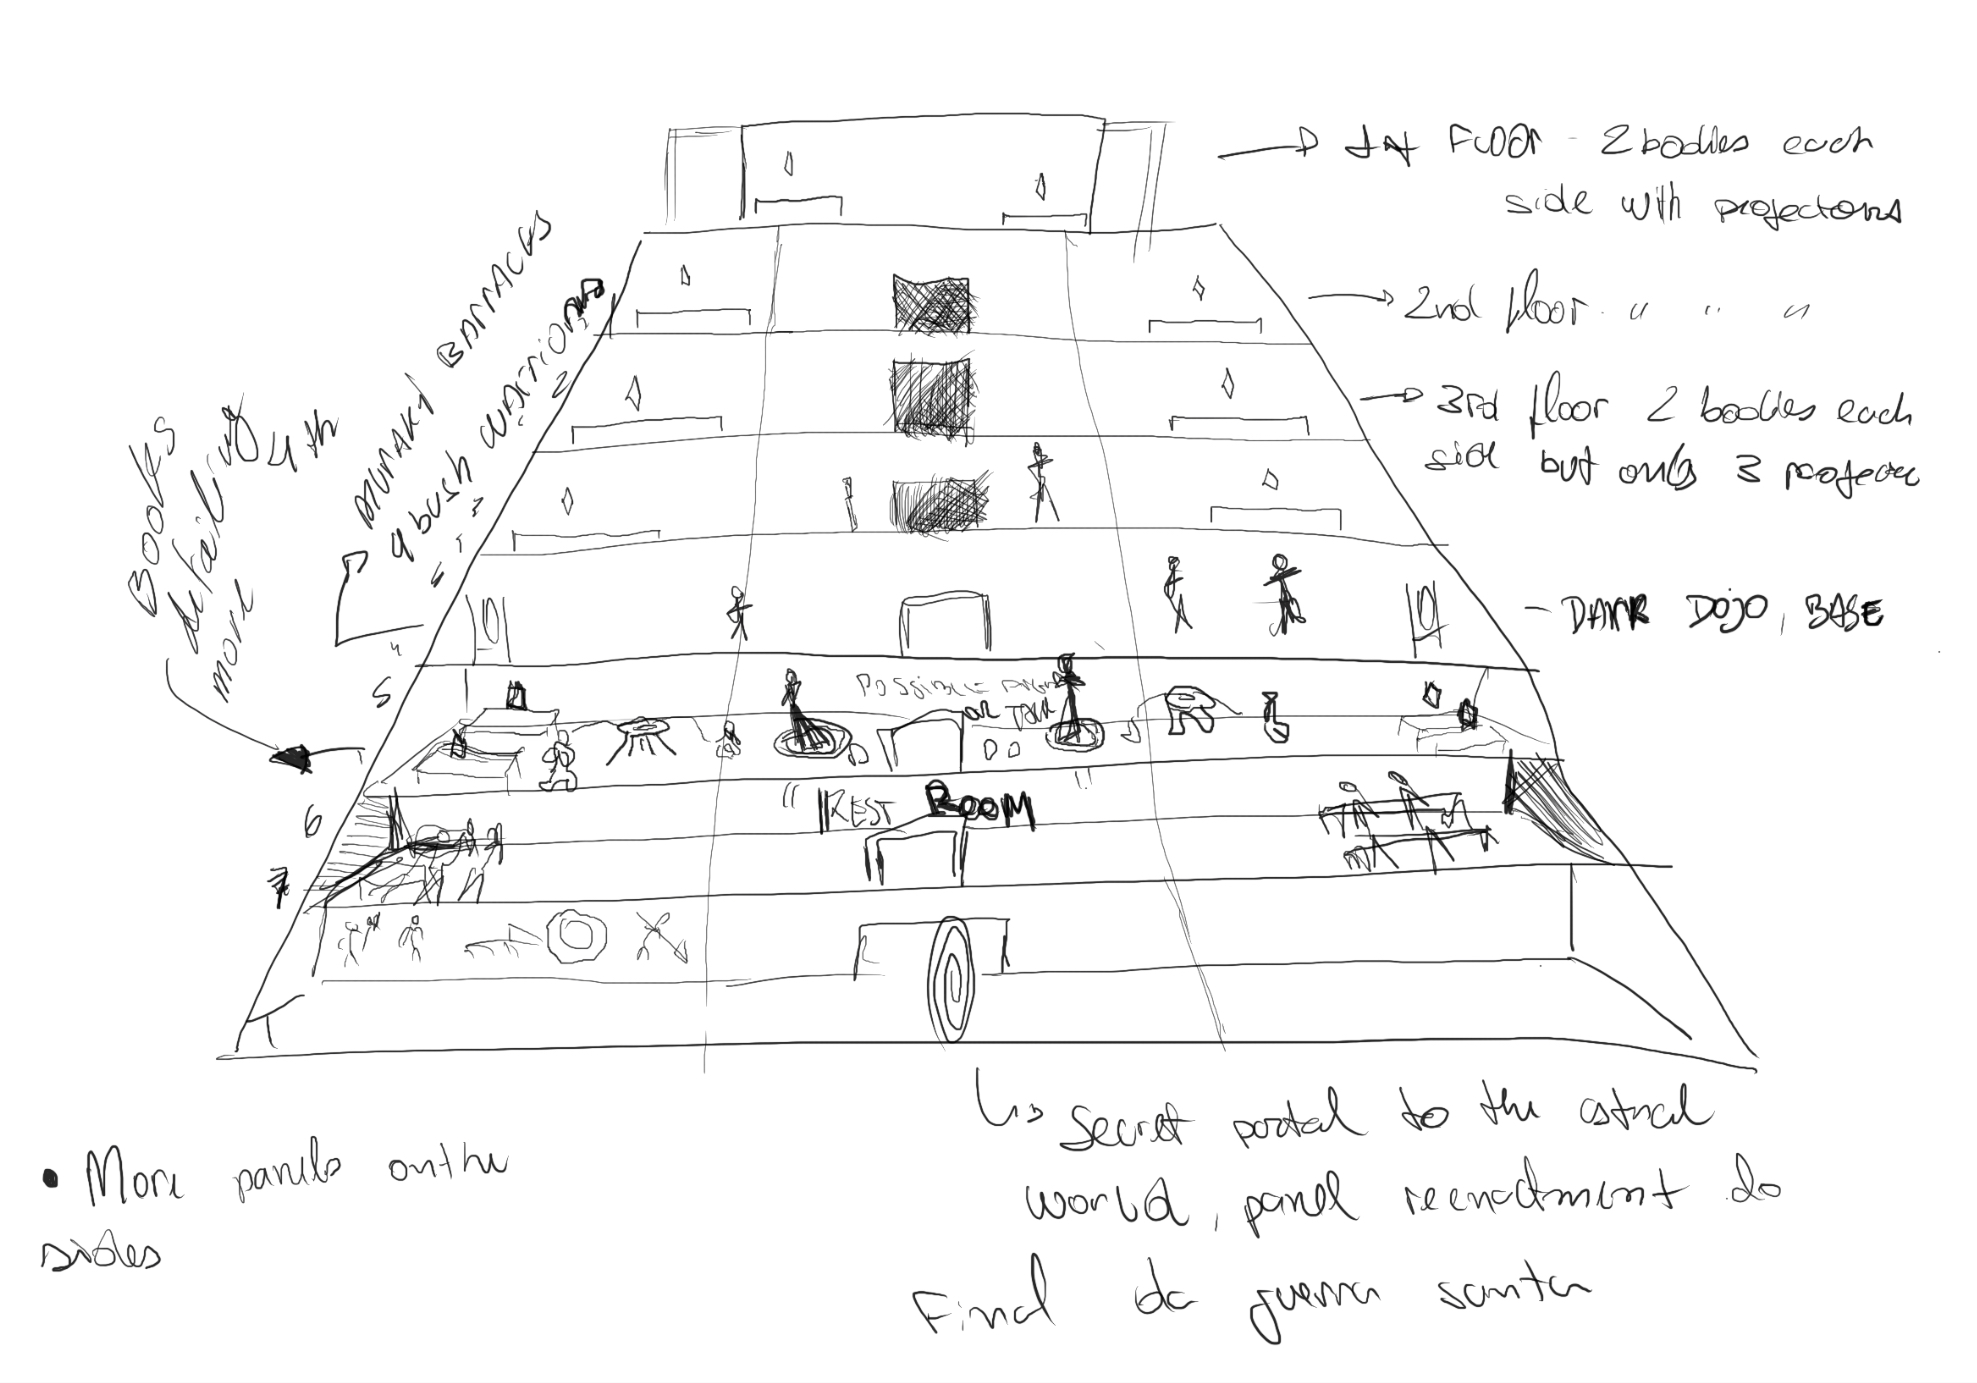 FLOOR - 2 bodies each
side with projectors
2nd floor " " "
3rd floor 2 bodies each
side but only 3
DARK DOJO, BASE
4th
BARRACKS
bush warriors
Books
detailing
more
2
3
4
5
POSSIBLE
OR
REST ROOM
6
7
Secret portal to the astral
world, panel reenactment do
Final da guerra santa
• More panels on the
sides